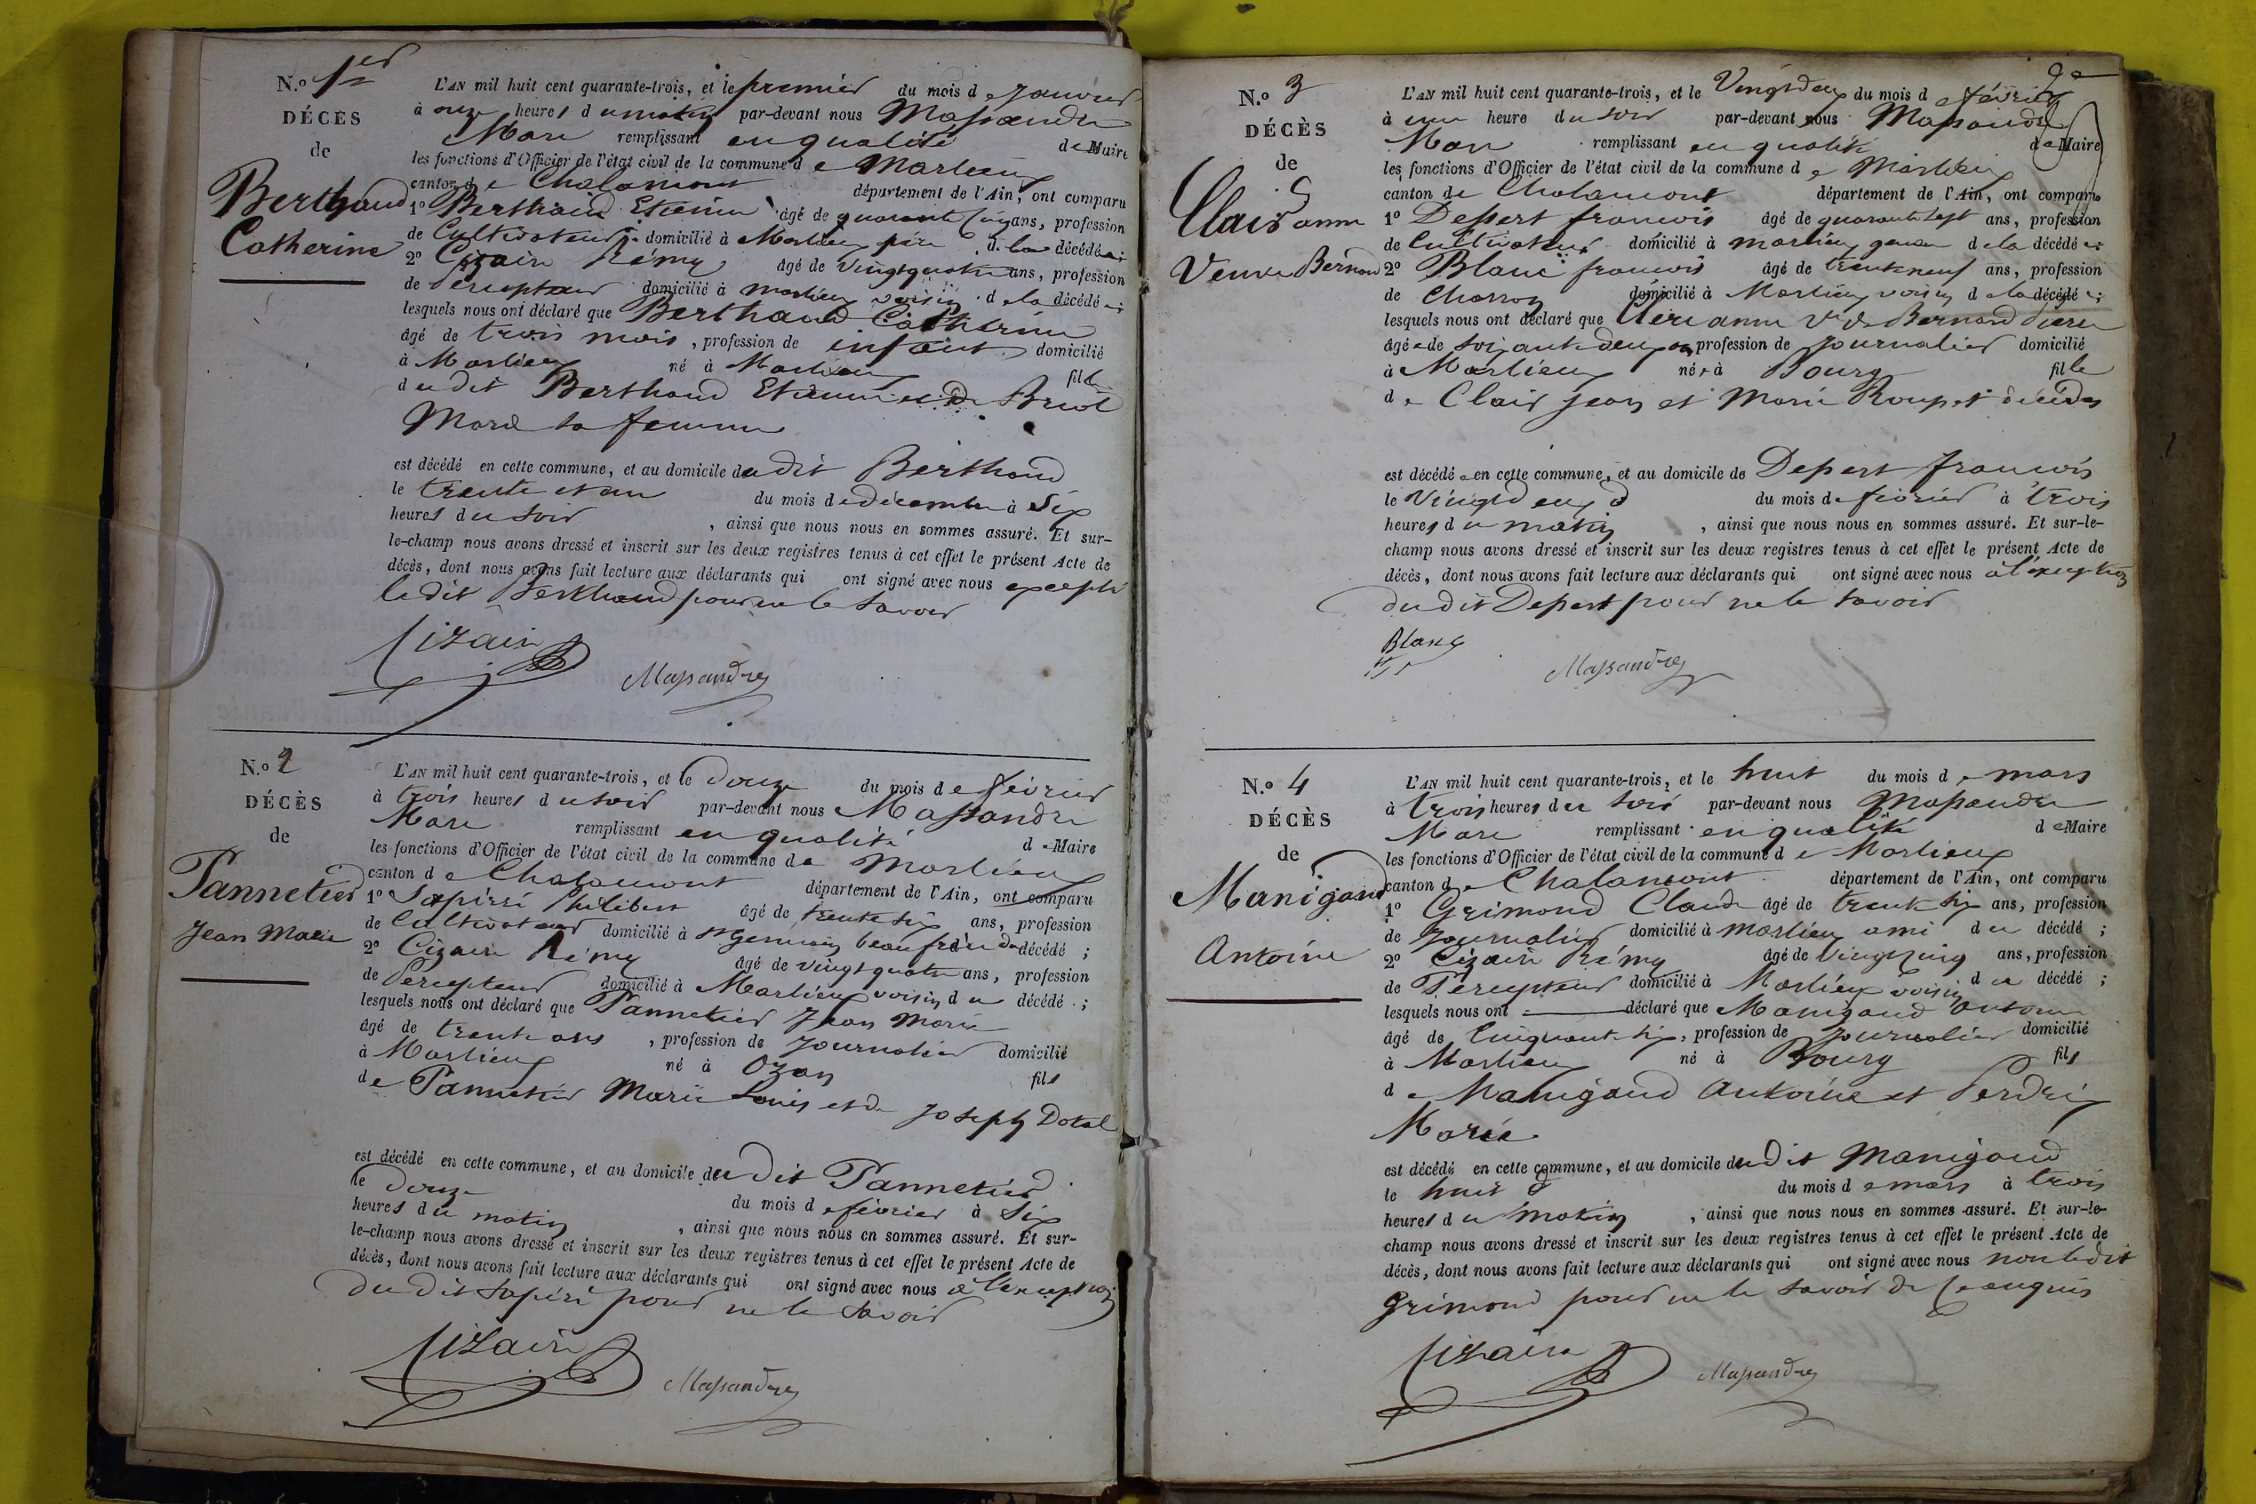 N.o 1er
DÉCÈS
de
Berthaud
Catherine
L'AN mil huit cent quarante-trois, et le premier du mois de Janvier
à onze heures du matin par-devant nous Massandre
Marc remplissant en qualité de Maire
les fonctions d'Officier de l'état civil de la commune de Marlieux
canton de Chalamont département de l'Ain, ont comparu
1o Berthaud Etienne âgé de quarante cinq ans, profession
de Cultivateur domicilié à Marlieux père de la décédée;
2o Cizain Rémy âgé de vingt quatre ans, profession
de Percepteur domicilié à Marlieux voisin de la décédée;
lesquels nous ont déclaré que Berthaud Catherine
âgé de trois mois, profession de enfant domicilié
à Marlieux né à Marlieux fille
du dit Berthaud Etienne et de
sa femme
est décédé en cette commune, et au domicile du dit Berthaud
le trente et un du mois de décembre à Six
heures du soir, ainsi que nous nous en sommes assuré. Et sur-
le-champ nous avons dressé et inscrit sur les deux registres tenus à cet effet le présent Acte de
décès, dont nous avons fait lecture aux déclarants qui ont signé avec nous excepté
le dit Berthaud pour ne le savoir
Cizain
Massandre
N.o 2
DÉCÈS
de
Pannetier
Jean Marie
L'AN mil huit cent quarante-trois, et le Douze du mois de février
à trois heures du soir par-devant nous Massandre
Marc remplissant en qualité de Maire
les fonctions d'Officier de l'état civil de la commune de Marlieux
canton de Chalamont département de l'Ain, ont comparu
1o Philibert âgé de trente six ans, profession
de Cultivateur domicilié à St Germain beaufrère du décédé;
2o Cizain Rémy âgé de vingt quatre ans, profession
de Percepteur domicilié à Marlieux voisin du décédé;
lesquels nous ont déclaré que Pannetier Jean Marie
âgé de trente ans, profession de Journalier domicilié
à Marlieux né à Ozan fils
de Pannetier Marie Louis et de Joseph Dotal
est décédé en cette commune, et au domicile du dit Pannetier
le Douze du mois de février à Six
heures du matin, ainsi que nous nous en sommes assuré. Et sur-
le-champ nous avons dressé et inscrit sur les deux registres tenus à cet effet le présent Acte de
décès, dont nous avons fait lecture aux déclarants qui ont signé avec nous à l'exception
du dit pour ne le savoir
Cizain
Massandre
N.o 3
DÉCÈS
de
Clair anne
Veuve Bernard
L'AN mil huit cent quarante-trois, et le Vingt deux du mois de février
à une heure du soir par-devant nous Massandre
Marc remplissant en qualité de Maire
les fonctions d'Officier de l'état civil de la commune de Marlieux
canton de Chalamont département de l'Ain, ont comparu
1o Depert francois âgé de quarante sept ans, profession
de Cultivateur domicilié à Marlieux gendre de la décédée;
2o Blanc francois âgé de trente neuf ans, profession
de Charron domicilié à Marlieux voisin de la décédée;
lesquels nous ont déclaré que anne Ve de Bernard
âgée de soixante deux ans profession de Journalier domicilié
à Marlieux née à Bourg fille
de Clair Jean et Marie décédés
est décédée en cette commune, et au domicile de Depert francois
le Vingt deux du mois de février à trois
heures du matin, ainsi que nous nous en sommes assuré. Et sur-le-
champ nous avons dressé et inscrit sur les deux registres tenus à cet effet le présent Acte de
décès, dont nous avons fait lecture aux déclarants qui ont signé avec nous à l'exception
du dit Depert pour ne le savoir
Blanc
Massandre
N.o 4
DÉCÈS
de
Manigaud
Antoine
L'AN mil huit cent quarante-trois, et le huit du mois de mars
à trois heures du soir par-devant nous Massandre
Marc remplissant en qualité de Maire
les fonctions d'Officier de l'état civil de la commune de Marlieux
canton de Chalamont département de l'Ain, ont comparu
1o Grimond Claude âgé de trente six ans, profession
de Journalier domicilié à Marlieux ami du décédé;
2o Cizain Rémy âgé de vingt cinq ans, profession
de Percepteur domicilié à Marlieux voisin du décédé;
lesquels nous ont déclaré que Manigaud antoine
âgé de Cinquante six, profession de Journalier domicilié
à Marlieux né à Bourg fils
de Manigaud Antoine et Perdrix
Marie
est décédé en cette commune, et au domicile du dit Manigaud
le huit du mois de mars à trois
heures du matin, ainsi que nous nous en sommes assuré. Et sur-le-
champ nous avons dressé et inscrit sur les deux registres tenus à cet effet le présent Acte de
décès, dont nous avons fait lecture aux déclarants qui ont signé avec nous non le dit
grimond pour ne le savoir de ce enquis
Cizain
Massandre